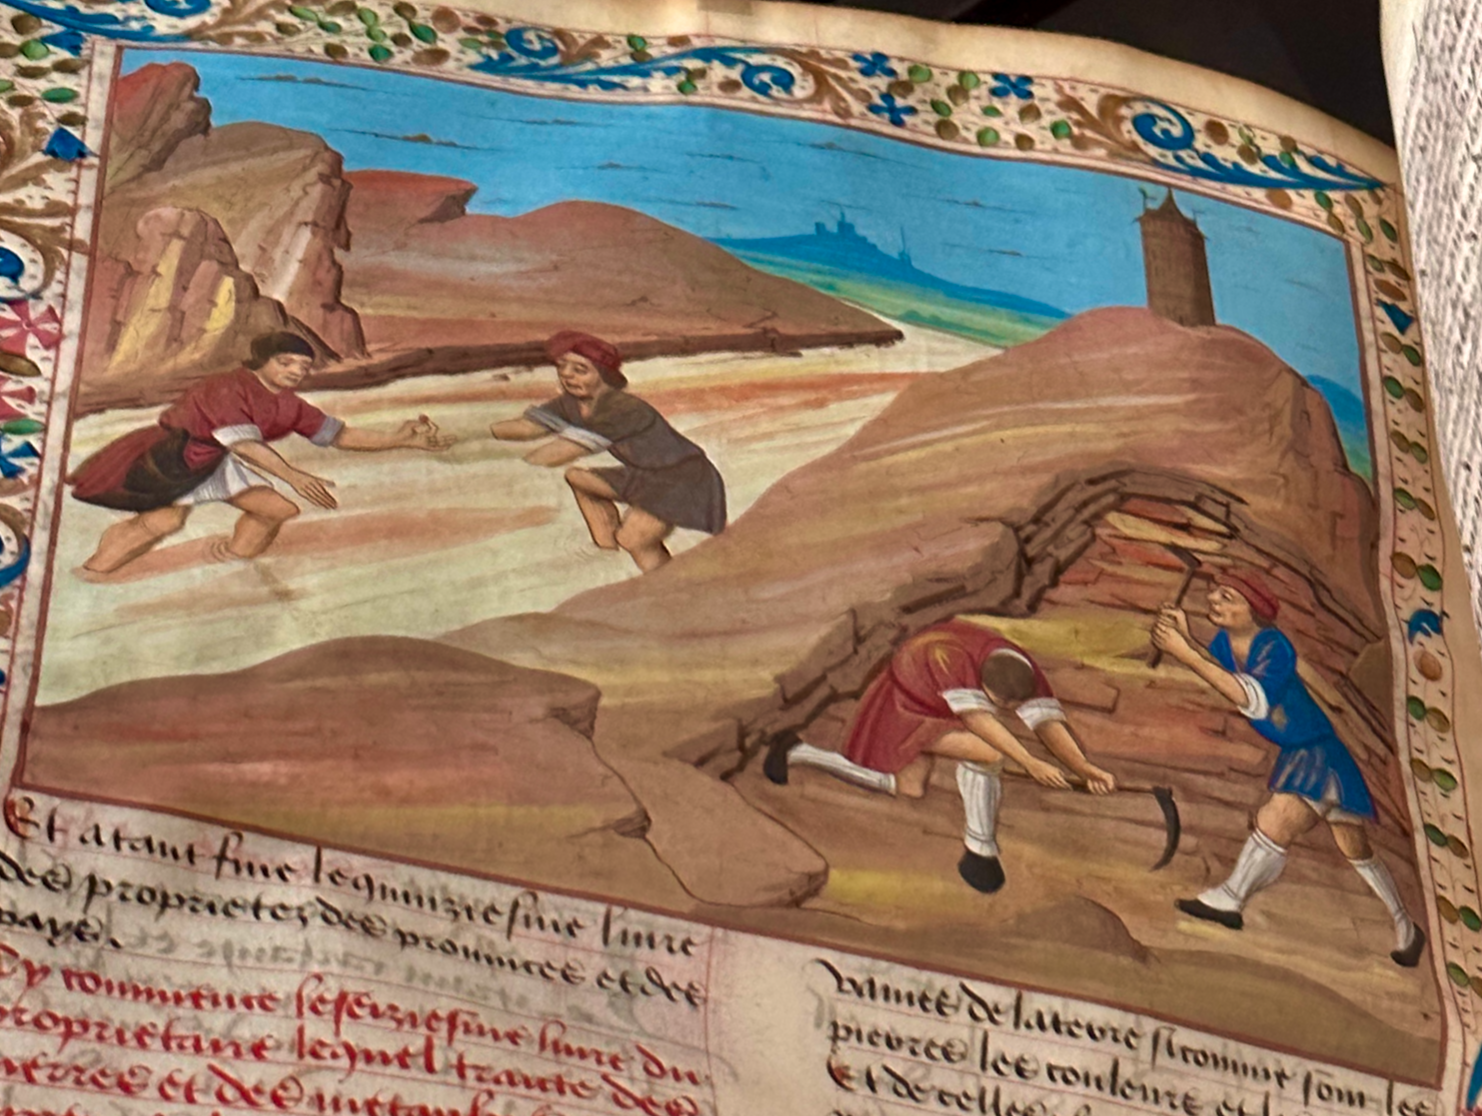 Et atant fine le quinziesme livre
des proprietez des provinces et des
pays.
Cy commence le seiziesme livre du
proprietaire lequel traicte des
pierres et des metaulx
vaines de la terre si comme sont les
pierres les couleurs et l
Et de celles